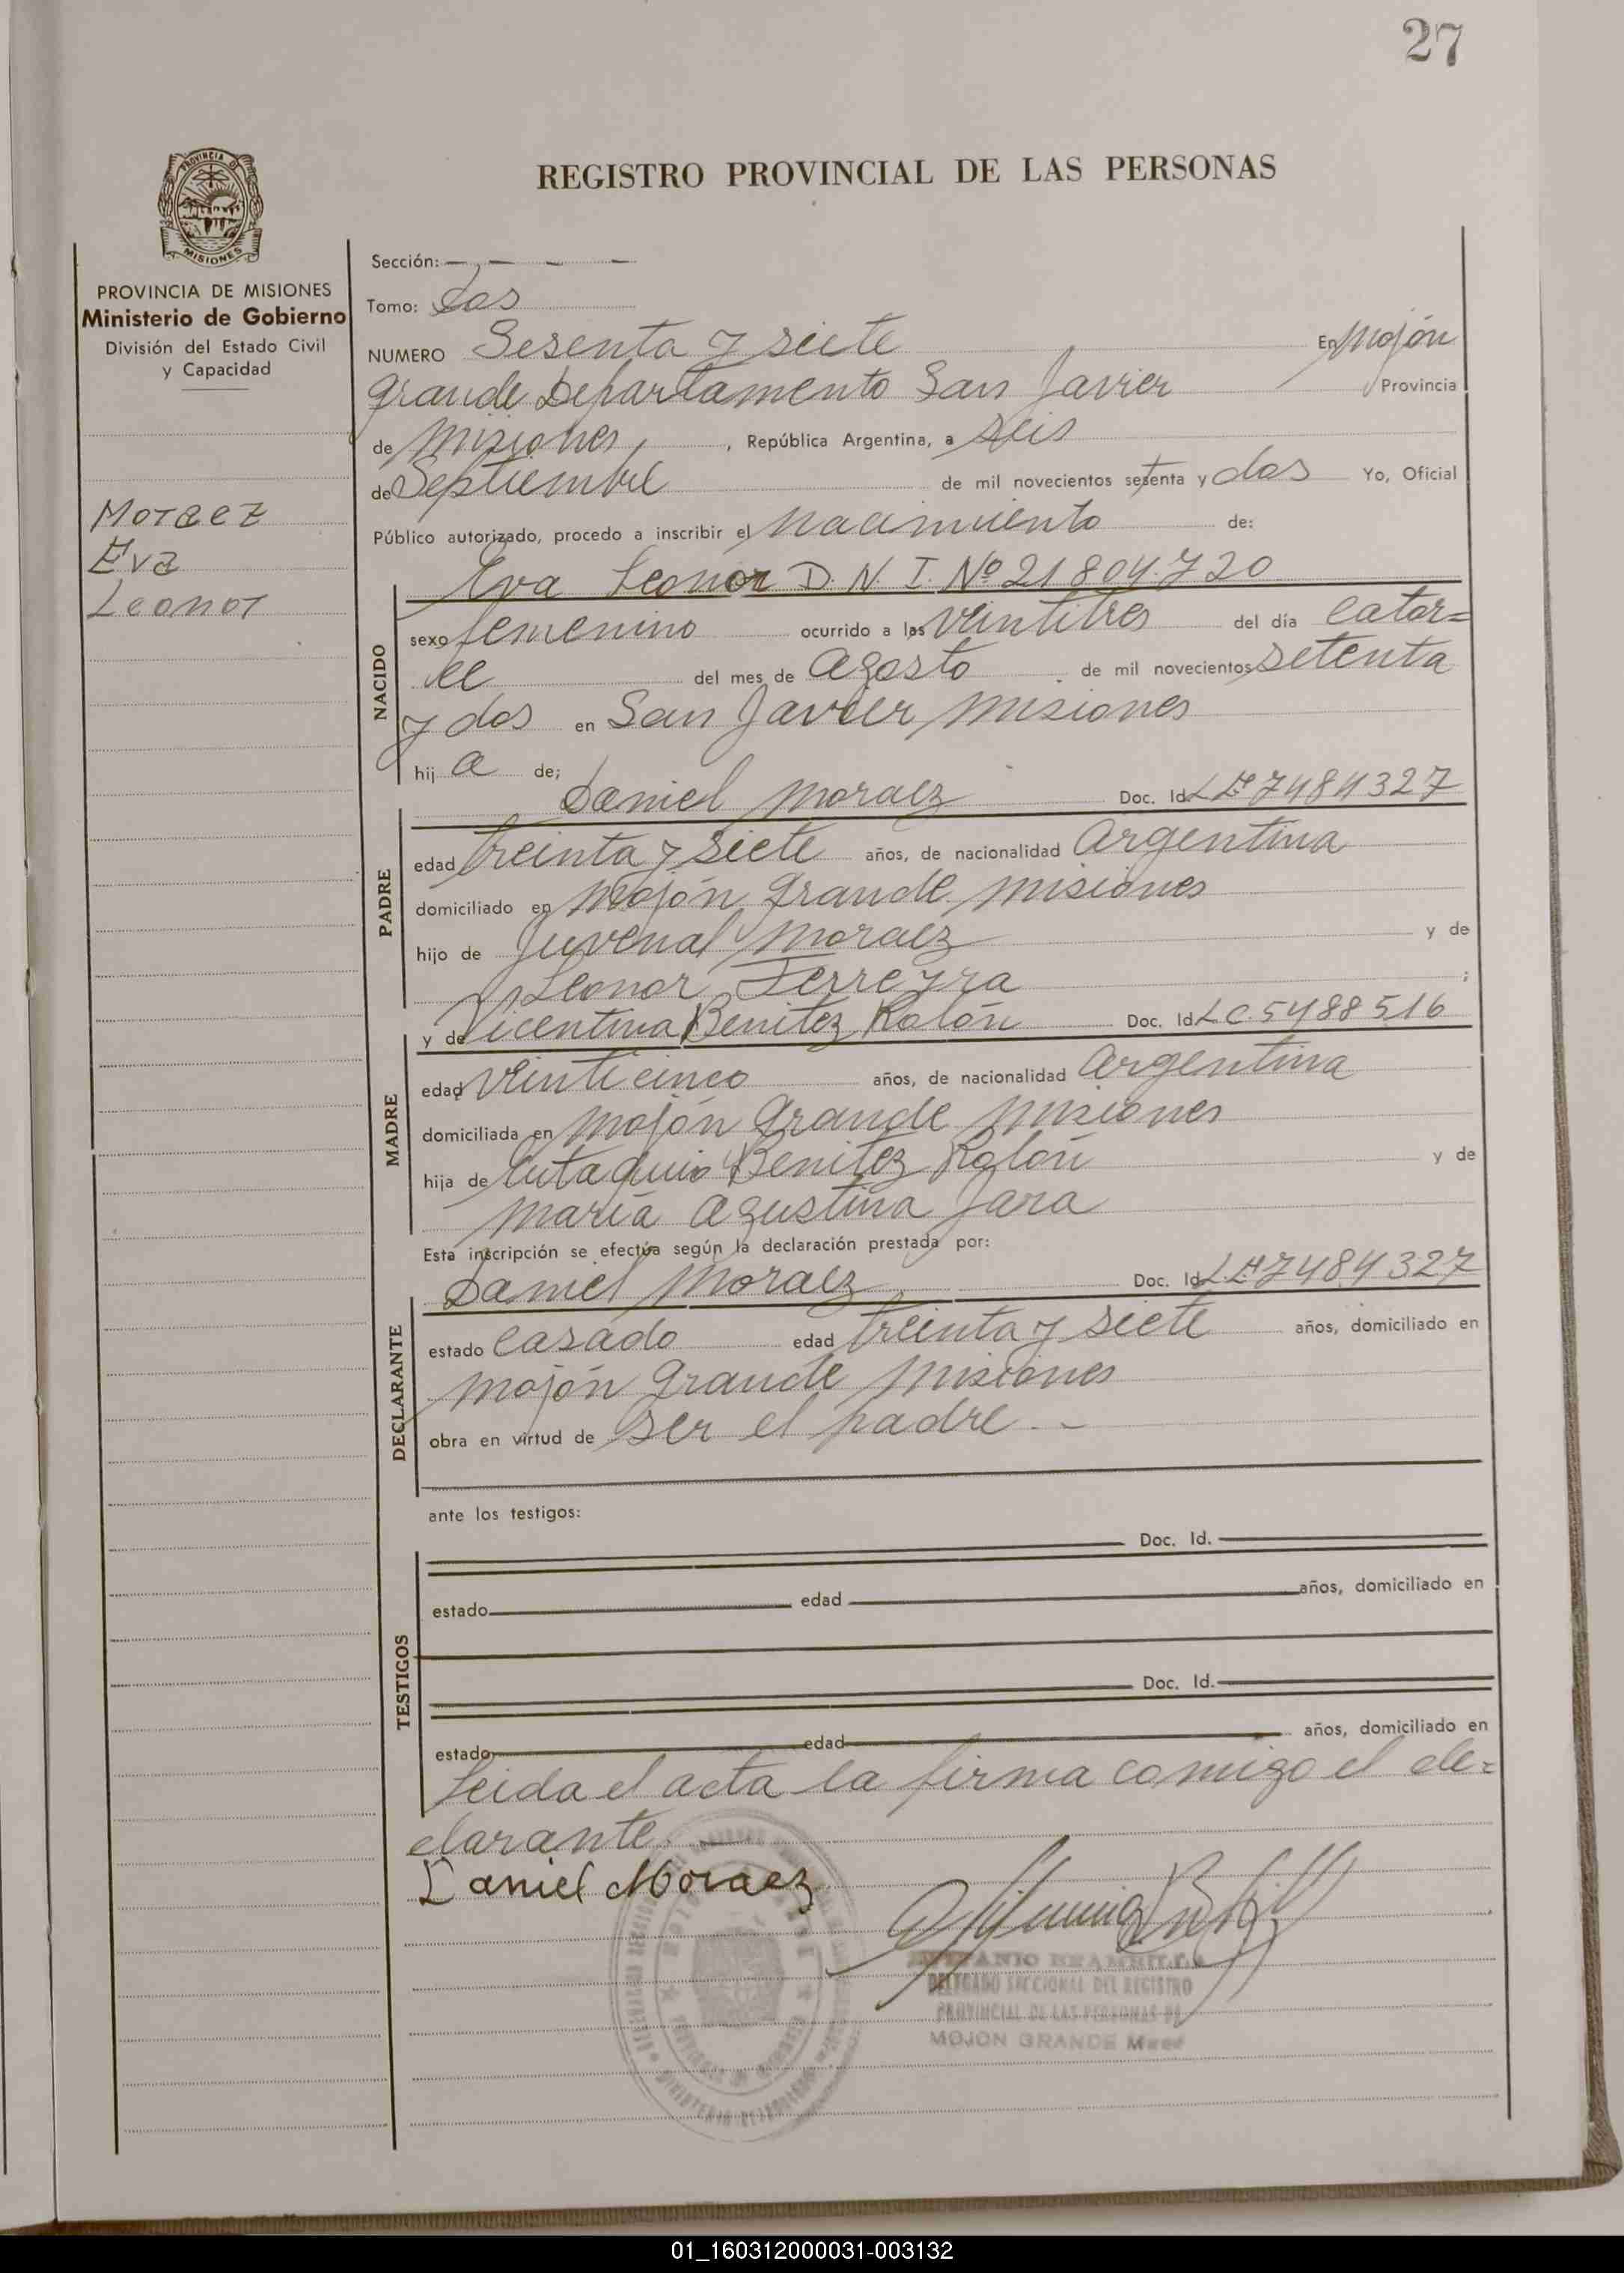 27
REGISTRO PROVINCIAL DE LAS PERSONAS
MISIONES
PROVINCIA DE MISIONES
Ministerio de Gobierno
División del Estado Civil
y Capacidad
Moraez
Eva
Leonor
Sección:
Tomo: Dos
NUMERO Sesenta y siete En Mojón
Grande Departamento San Javier Provincia
de Misiones, , República Argentina, a seis
de Septiembre de mil novecientos setenta y dos Yo, Oficial
Público autorizado, procedo a inscribir el nacimiento de:
Eva Leonor D. N. I. Nº 21804720
NACIDO
sexo femenino ocurrido a las veintitres del día cator=
ce del mes de Agosto de mil novecientos setenta
y dos en San Javier Misiones
hij a de;
Daniel Moraez Doc. Id. L E 7484327
PADRE
edad treinta y siete años, de nacionalidad Argentina
domiciliado en Mojón Grande Misiones
hijo de Juvenal Moraez y de
Leonor Ferreyra ;
y de Vicentina Benitez Rolón Doc. Id. L C. 5488516
MADRE
edad veinticinco años, de nacionalidad Argentina
domiciliada en Mojón Grande Misiones
hija de Eutaquio Benitez Rolón y de
María Agustina Jara
Esta inscripción se efectúa según la declaración prestada por:
Daniel Moraez Doc. Id. L E 7484327
DECLARANTE
estado casado edad treinta y siete años, domiciliado en
Mojón Grande Misiones
obra en virtud de ser el padre.-
ante los testigos:
TESTIGOS
Doc. Id.
estado edad años, domiciliado en
Doc. Id.
estado edad años, domiciliado en
Leida el acta la firma comigo el de=
clarante.-
Daniel Moraez
DELEGADO SECCIONAL DEL REGISTRO
PROVINCIAL DE LAS PERSONAS DE
MOJON GRANDE
01_160312000031-003132